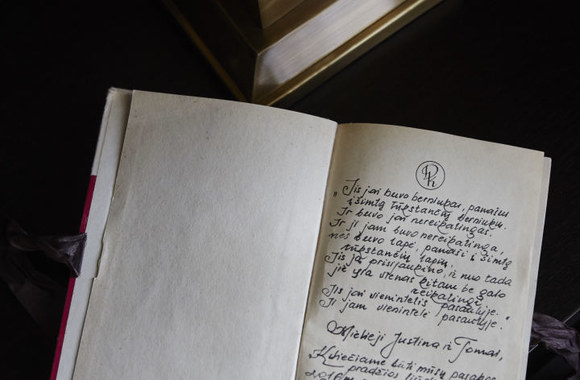 "Jis jai buvo berniukas, panašus
į šimtą tūkstančių berniukų.
Ir buvo jai nereikalingas.
Ir ji jam buvo nereikalinga,
nes buvo lapė, panaši į šimtą
tūkstančių lapių.
Jis ją prisijaukino, ir nuo tada
jie yra vienas kitam be galo
reikalingi.
Jis jai vienintelis pasaulyje.
Ji jam vienintelė pasaulyje."
Mieliejí Justina ir Tomai,
Kviečiame būti mūsų pasakos
pradžios
2016 m.